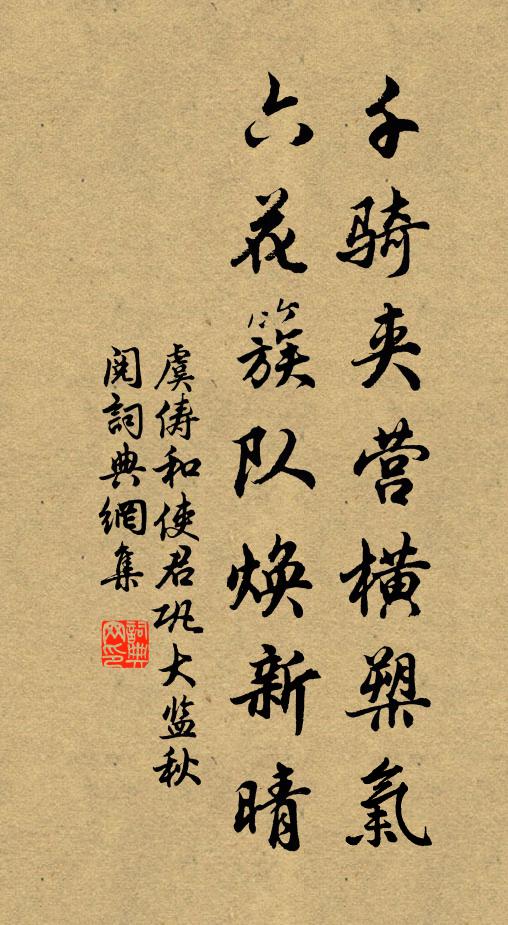 千骑夹营横槊氣
六花簇队焕新晴
虞俦和使君巩大监秋
阅詞典網集
詞典网印